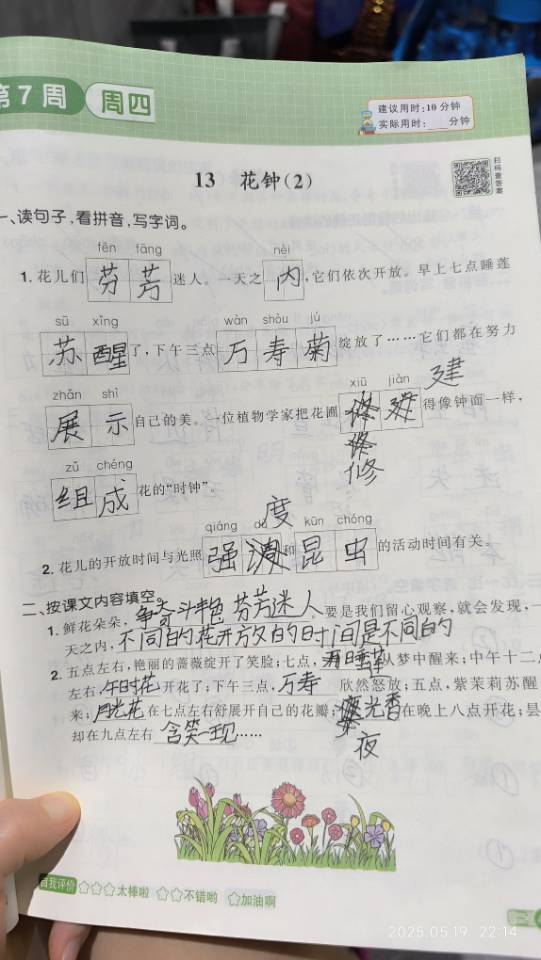 第7周 周四
建议用时:10分钟
实际用时: 分钟
扫码查答案
13 花钟(2)
一、读句子,看拼音,写字词。
fēn fāng nèi
1.花儿们芬芳迷人。一天之内,它们依次开放。早上七点睡莲
sū xǐng wàn shòu jú
苏醒了,下午三点万寿菊绽放了……它们都在努力
zhǎn shì xiū jiàn 建
展示自己的美。一位植物学家把花圃得像钟面一样,
修
zǔ chéng
组成花的“时钟”。
度
qiáng dù kūn chóng
2.花儿的开放时间与光照强和昆虫的活动时间有关。
二、按课文内容填空。
1.鲜花朵朵,争奇斗艳 芬芳迷人。要是我们留心观察,就会发现,一
天之内,不同的花开放的时间是不同的
2.五点左右,艳丽的蔷薇绽开了笑脸;七点,睡莲从梦中醒来;中午十二点
左右,午时花开花了;下午三点,万寿 欣然怒放;五点,紫茉莉苏醒
来;月光花在七点左右舒展开自己的花瓣;光香在晚上八点开花;昙
夜
却在九点左右含笑一现……
自我评价 太棒啦 不错哟 加油啊
2025.05.19 22:14